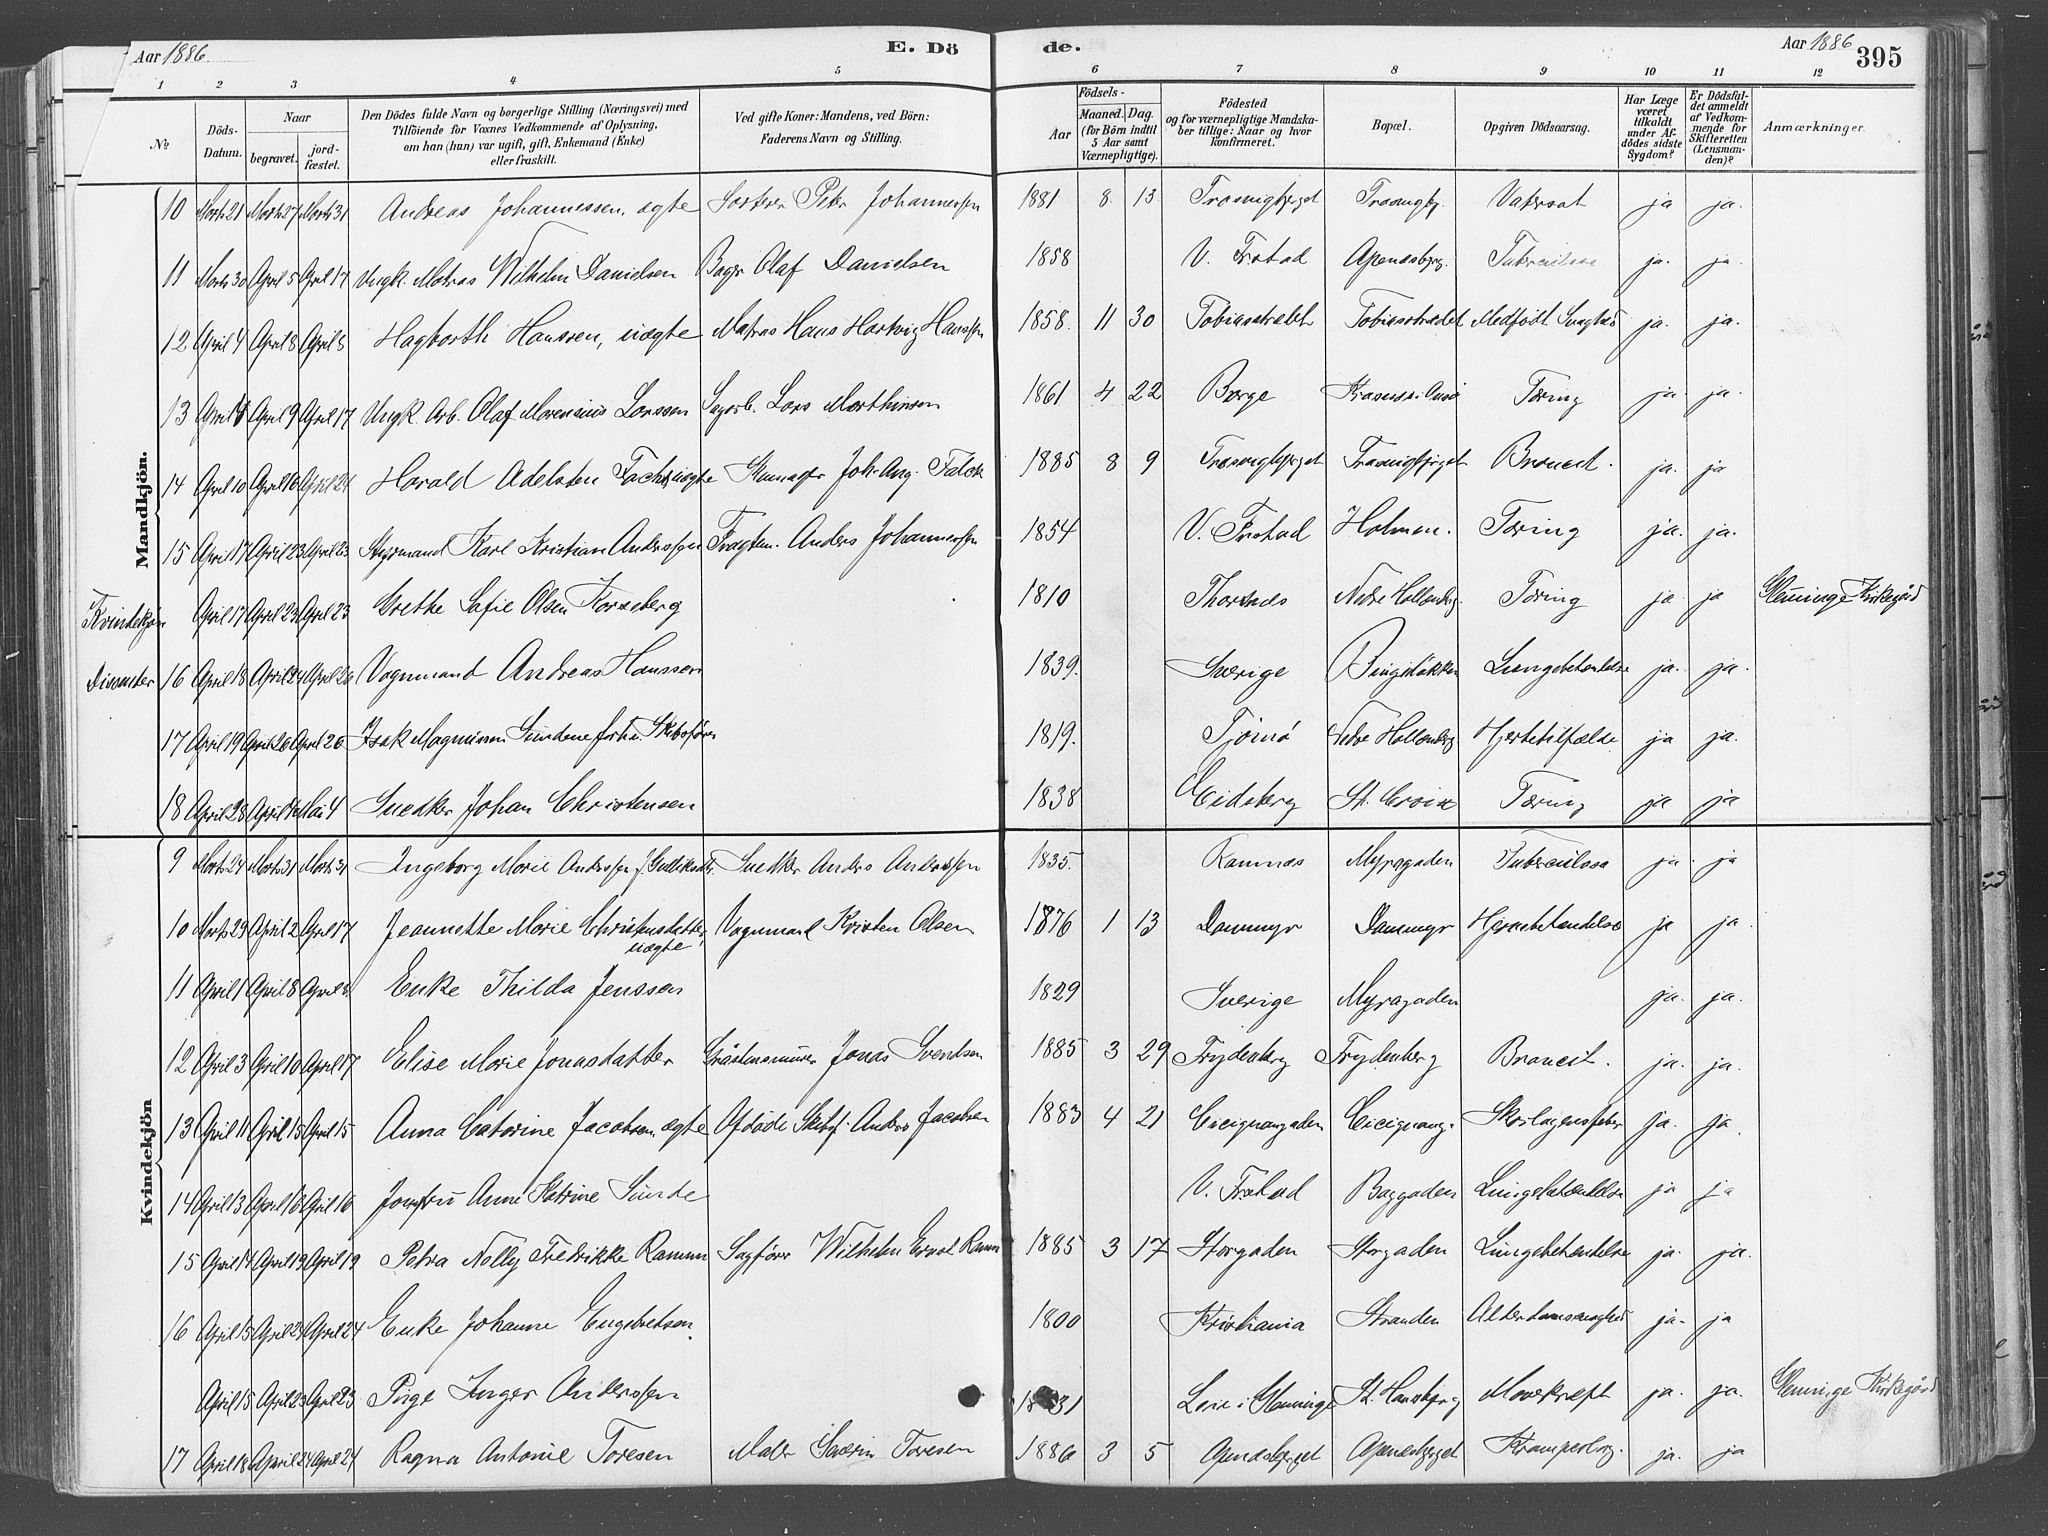 Aar 1886
E. Dö
de.
Aar 1886
395
1 2 3 4 5 6 7 8 9 10 11 12
№
Döds-Datum.
Naar
begravet.
jord-fæstet.
Den Dödes fulde Navn og borgerlige Stilling (Næringsvei) med
Tilföiende for Voxnes Vedkommende af Oplysning,
om han (hun) var ugift, gift, Enkemand (Enke)
eller fraskilt.
Ved gifte Koner: Mandens, ved Börn:
Faderens Navn og Stilling.
Födsels-
Aar
Maaned. Dag.
(for Börn indtil
5 Aar samt
Værnepligtige).
Födested
og for værnepligtige Mandska-
ber tillige: Naar og hvor
konfirmeret.
Bopæl.
Opgiven Dödsaarsag.
Har Læge
været
tilkaldt
under Af-
dödes sidste
Sygdom?
Er Dödsfal-
det anmeldt
af Vedkom-
mende for
Skifteretten
(Lensman-
den)?
Anmærkninger.
Mandkjön.
10 Marts 21 Marts 27 Marts 31 Andreas Johannessen, ægte Sorterer Petr Johannessen 1881 8 13 Trosvigbjerget Trosvigbj. Vatersot ja ja.
11 Marts 30 April 5 April 17 Ungk. Matros Wilhelm Danielsen Bager Olaf Danielsen 1858 V. Frstad Apenesbjerg. Tuberculose ja. ja.
12 April 4 April 8 April 8 Hagbarth Hanssen, uægte Matros Hans Hartvig Hanssen 1858. 11 30 Tobiasstrædet Tobiasstrædet Medfödt Svaghed ja. ja.
13 April 4 April 9 April 17 Ungk. Arb. Olaf Morensius Larssen Sagarb. Lars Marthinsen 1861 4 22 Borge Tæring ja. ja.
14 April 10 April 16 April 24 Harald Adelsten uægte Joh. Aug. Falck 1885 8 9 Trosvigbjerget Trosvigbjerget Broncit. ja. ja
15 April 17 April 23 April 23 Styrmand Karl Kristian Anderssen Fragtem. Anders Johannessen 1854 V. Frstad Holmen. Tæring ja. ja.
Kvindekjön April 17 April 23 April 23 Grethe Sofie Olsen Korseberg 1810 Nedre Hollenderg. Tæring ja ja Glemminge Kirkegård
Dissenter 16 April 18 April 24 April 26 Vognmand Andreas Hanssen 1839. Sverige Bingsløkken Lungebetændelse ja. ja.
17 April 19 April 26 April 26 Isak Magnussen Sundene forh. Skibsfører 1819. Tjömö Nedre Hollenderg. Hjertetilfælde ja ja.
18 April 28 Mai 4 Snedker Johan Christensen 1838 Eidsberg St. Croix Tæring ja ja
Kvindekjön
9 Marts 24 Marts 31 Marts 31 Ingeborg Marie Anderssen f. Gulliksdtr. Snedker Anders Anderssen 1835. Ramnæs Myragaden Tuberculose ja. ja
10 Marts 29 April 2 April 17 Jeannette Marie Christensdatter, uægte Vognmand Kristen Olsen 1876 1 13 Dammyr Dammyr Hjernebetændelse ja ja.
11 April 1 April 8 April 8 Enke Thilda Jenssen 1829 Sverige Myragaden ja. ja.
12 April 3 April 10 April 17 Elise Marie Jonasdatter Gråstensmurer Jonas Svendsen 1885 3 29 Frydenberg Frydenberg Broncit. ja. ja.
13 April 11 April 15 April 15 Anna Catorine Jacobsen ægte Afdöde Skibsf. Anders Jacobsen 1883 4 21 Cicignongaden Cicignong. Skarlagensfeber ja. ja.
14 April 13 April 16 April 16 Jomfru Anne Katrine Sunde V. Frstad Baggaden Lungebetændelse ja ja
15 April 14 April 19 April 19 Petra Nelly Fredrikke Ramm Sagfører Wilhelm Ernst Ramm 1885 3 17 Storgaden Storgaden Lungebetændelse ja. ja.
16 April 15 April 24 April 24 Enke Johanne Engebretsen. 1800 Kristiania Stranden Alderdomssvaghed ja. ja
April 15 April 23 April 23 Pige Inger Anderssen 1831 Leie i Glemminge St. Hansbjerg Mavekræft ja. ja. Glemminge Kirkegård
17 April 18 April 24 April 24 Ragna Antonie Toresen Maler Severin Toresen 1886 3 5 Apenesbjerget Apenesbjerget Krampeslag. ja. ja